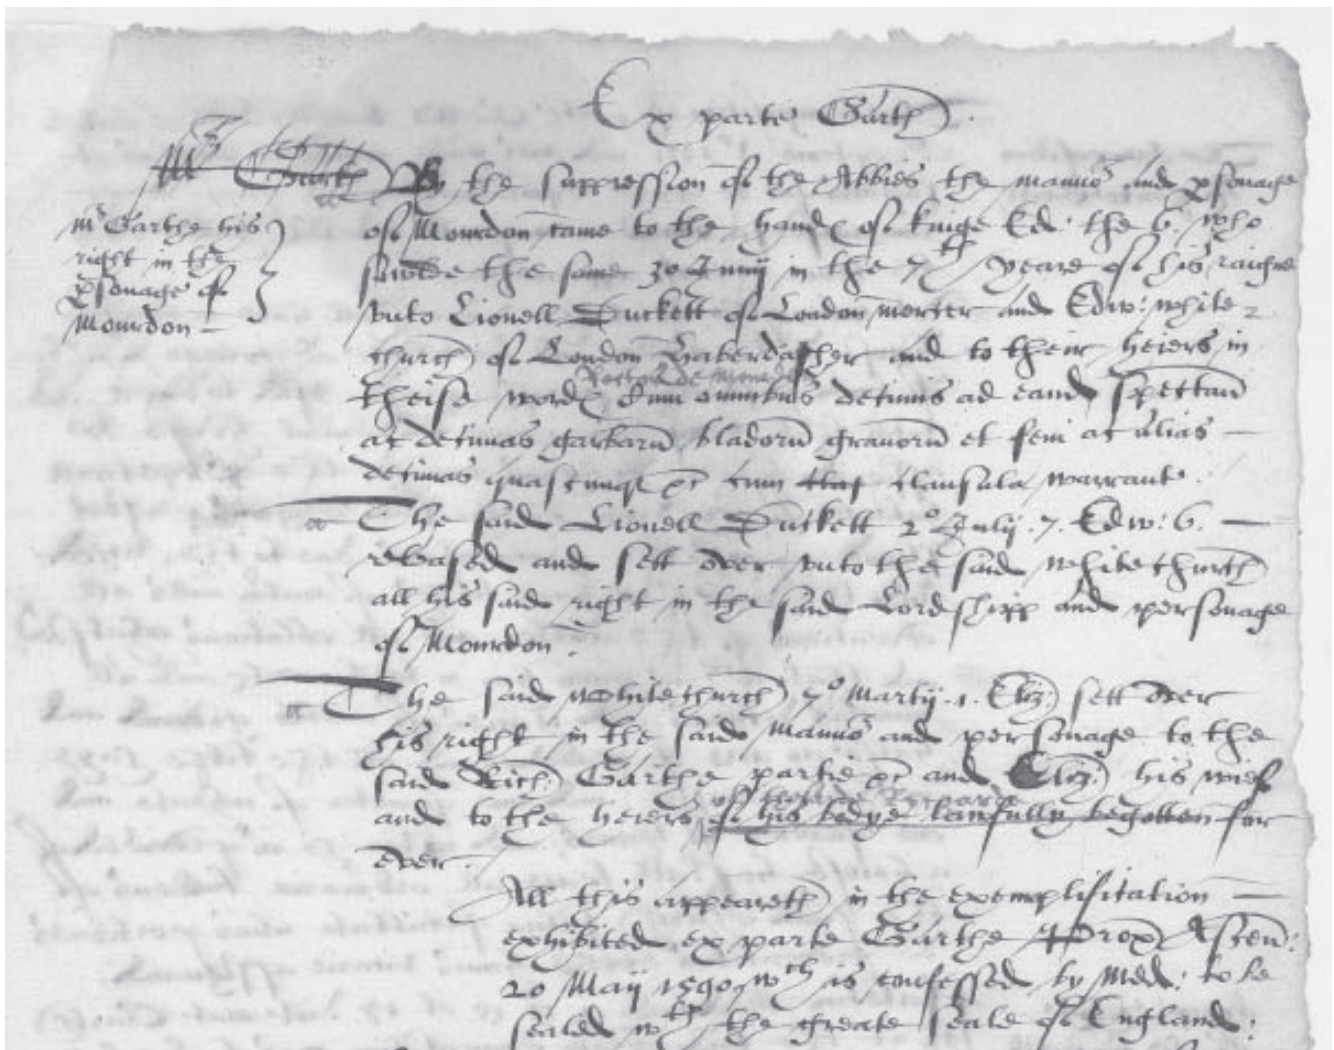 Ex parte Garth
Garth
Mr Garthe his
right in the
psonage of
Mourdon
By the suppression of the Abbies the mannor and psonage
of Mourdon came to the hands of kinge Ed: the 6. who
the same 30 Junij in the 7th yeare of his raigne
vnto Lionell Duckett of London mercer and Edw: white
church of London haberdasher and to their heiers in
Rectorie de Mourdon
theise words Cum omnibus decimis ad eand spectan
ac decimas garbarū bladorū granorū et feni ac alias
decimas quascunq &c cum clausula warrant.
The said Lionell Duckett 2o July .7. Edw: 6.
released and sett over vnto the said whitechurch
all his said right in the said Lordshipp and personage
of Mourdon.
The said whitechurch 7o Martij .1. Eliz: sett over
his right in the said mannor and personage to the
said Rich: Garthe partie &c and Eliz: his wief
of the said Richarde
and to the heiers of his bodye lawfully begotten for
ever.
All this appeareth in the exemplification
exhibited ex parte Garthe prox Ascen:
20 Maij 1590 wch is confessed by Med: to be
sealed wth the greate seale of England: